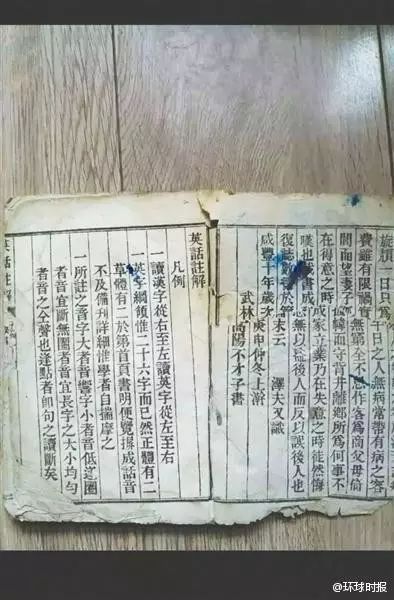 一日只為 日之人無病常帶有病之容
費雖有限禍實無窮全不 忌作客為商父母倚
閭而望妻子倚幃而守背井離鄉所為何事不
在得意之時成家立業乃在失意之時徒然悔
嘆也 書成 無以 後人而反以誤後人也
復誌數 於 末云 澤夫又識
咸豐十年歲次庚申仲冬上澣
武林高陽不才子書
英話註解
凡例
一讀漢字從右至左讀英字從左至右
一英字綱領惟二十六字而已然正體有二
草體有二於第首頁書明便覽據成話音
不及備刊詳細惟學者自揣摩之
一所註之音字大者音響字小者音低逗圈
者音宜斷無圈者音宜長字之大小均勻
者音之全聲也逢點者即句之讀斷矣
英話註解
@环球时报